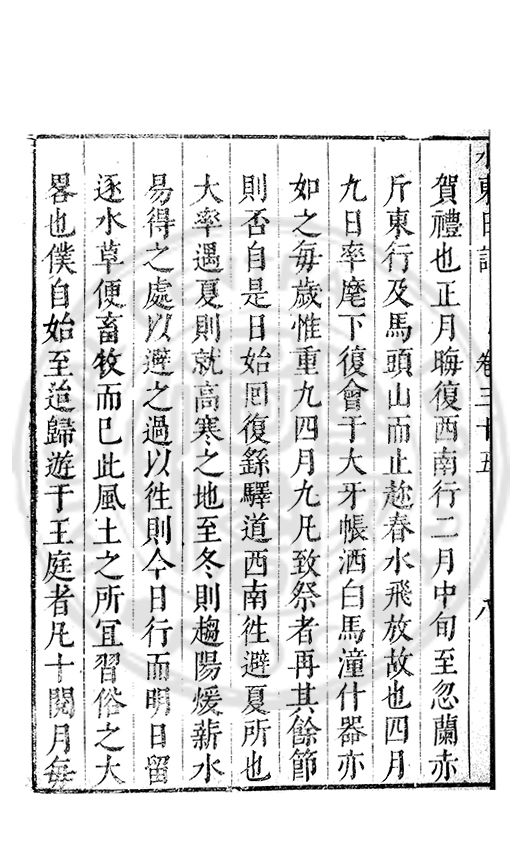 水東日記 卷三十五 八
賀禮也正月晦復西南行二月中旬至忽蘭赤
斤東行及馬頭山而止趂春水飛放故也四月
九日率麾下復會于大牙帳洒白馬潼什器亦
如之每歲惟重九四月九凡致祭者再其餘節
則否自是日始囘復繇驛道西南徃避夏所也
大率遇夏則就高寒之地至冬則趨陽煖薪水
易得之處以避之過以徃則今日行而明日留
逐水草便畜牧而巳此風土之所冝習俗之大
畧也僕自始至迨歸遊于王庭者凡十閱月每